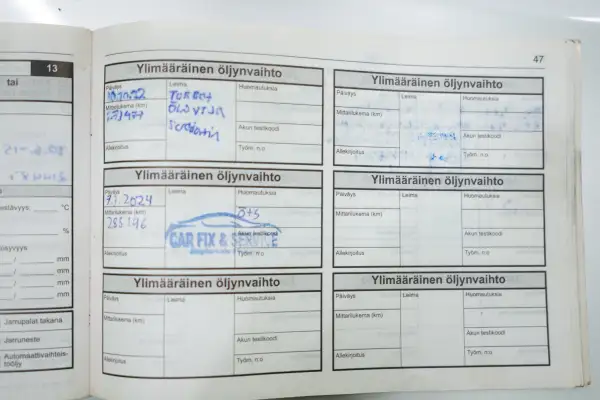 13
tai
estävyys: °C
%
mm
mm
mm
mm
Jarrupalat takana
Jarruneste
Automaattivaihteis-
toöljy
47
Ylimääräinen öljynvaihto
Päiväys
Leima
Huomautuksia
Mittarilukema (km)
Akun testikoodi
Allekirjoitus
Työm. n:o
Ylimääräinen öljynvaihto
Päiväys
Leima
Huomautuksia
Mittarilukema (km)
Akun testikoodi
Allekirjoitus
Työm. n:o
Ylimääräinen öljynvaihto
Päiväys
9.1.2024
Leima
Huomautuksia
Ö+S
Mittarilukema (km)
285146
CAR FIX & SERVICE
Akun testikoodi
Allekirjoitus
Työm. n:o
Ylimääräinen öljynvaihto
Päiväys
Leima
Huomautuksia
Mittarilukema (km)
Akun testikoodi
Allekirjoitus
Työm. n:o
Ylimääräinen öljynvaihto
Päiväys
Leima
Huomautuksia
Mittarilukema (km)
Akun testikoodi
Allekirjoitus
Työm. n:o
Ylimääräinen öljynvaihto
Päiväys
Leima
Huomautuksia
Mittarilukema (km)
Akun testikoodi
Allekirjoitus
Työm. n:o